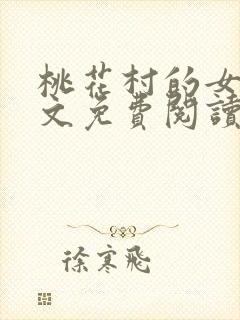 桃花村的女
文免費閱讀
徐寒飛